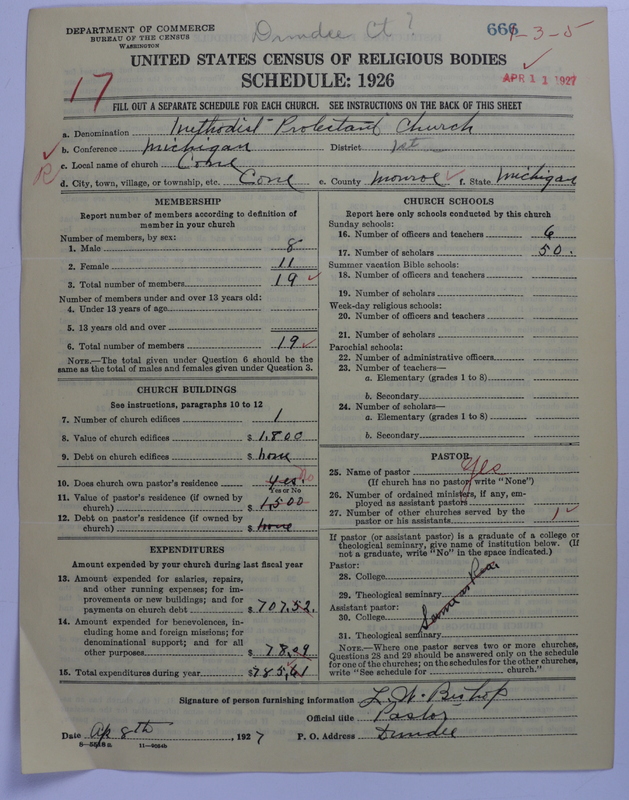 DEPARTMENT OF COMMERCE
BUREAU OF THE CENSUS
WASHINGTON
Dundee Ct ?
666
1-3-5
UNITED STATES CENSUS OF RELIGIOUS BODIES
SCHEDULE: 1926
APR 11 1927
17
FILL OUT A SEPARATE SCHEDULE FOR EACH CHURCH. SEE INSTRUCTIONS ON THE BACK OF THIS SHEET
a. Denomination Methodist Protestant Church
b. Conference Michigan District 1st
c. Local name of church Cone
R
d. City, town, village, or township, etc. Cone e. County Monroe f. State Michigan
MEMBERSHIP
Report number of members according to definition of
member in your church
Number of members, by sex:
1. Male 8
2. Female 11
3. Total number of members 19
Number of members under and over 13 years old:
4. Under 13 years of age
5. 13 years old and over
6. Total number of members 19
NOTE.—The total given under Question 6 should be the
same as the total of males and females given under Question 3.
CHURCH BUILDINGS
See instructions, paragraphs 10 to 12
7. Number of church edifices 1
8. Value of church edifices $ 1,800
9. Debt on church edifices $ none
10. Does church own pastor's residence yes. No
Yes or No
11. Value of pastor's residence (if owned by
church) $ 1,500
12. Debt on pastor's residence (if owned by
church) $ none
EXPENDITURES
Amount expended by your church during last fiscal year
13. Amount expended for salaries, repairs,
and other running expenses; for im-
provements or new buildings; and for
payments on church debt $ 707,52.
14. Amount expended for benevolences, in-
cluding home and foreign missions; for
denominational support; and for all
other purposes $ 78,09
15. Total expenditures during year $ 785,61
CHURCH SCHOOLS
Report here only schools conducted by this church
Sunday schools:
16. Number of officers and teachers 6
17. Number of scholars 50.
Summer vacation Bible schools:
18. Number of officers and teachers
19. Number of scholars
Week-day religious schools:
20. Number of officers and teachers
21. Number of scholars
Parochial schools:
22. Number of administrative officers
23. Number of teachers—
a. Elementary (grades 1 to 8)
b. Secondary
24. Number of scholars—
a. Elementary (grades 1 to 8)
b. Secondary
PASTOR
25. Name of pastor Yes
(If church has no pastor, write "None")
26. Number of ordained ministers, if any, em-
ployed as assistant pastors
27. Number of other churches served by the
pastor or his assistants 1
If pastor (or assistant pastor) is a graduate of a college or
theological seminary, give name of institution below. (If
not a graduate, write "No" in the space indicated.)
Pastor:
28. College
29. Theological seminary
Assistant pastor:
30. College
31. Theological seminary
NOTE.—Where one pastor serves two or more churches,
Questions 28 and 29 should be answered only on the schedule
for one of the churches; on the schedules for the other churches,
write "See schedule for church."
Signature of person furnishing information L. W. Bishop
Official title Pastor
Date Ap 8th, 1927 P. O. Address Dundee
8—5518 a 11—9054b